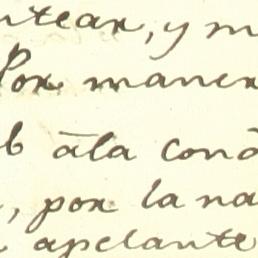 ntear, y m
Por maner
b āla conā
, por la na
apelante